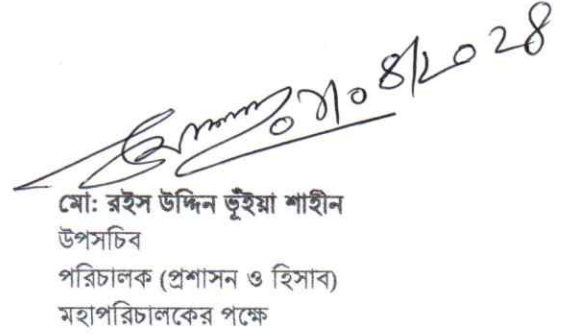 ০৯/০৪/২০২৪
মো: রইস উদ্দিন ভূঁইয়া শাহীন
উপসচিব
পরিচালক (প্রশাসন ও হিসাব)
মহাপরিচালকের পক্ষে